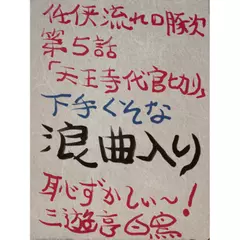 任侠流れの豚次
第5話
「天王寺代官切り」
下手くそな
浪曲入り
恥ずかしぃ〜!
三遊亭白鳥